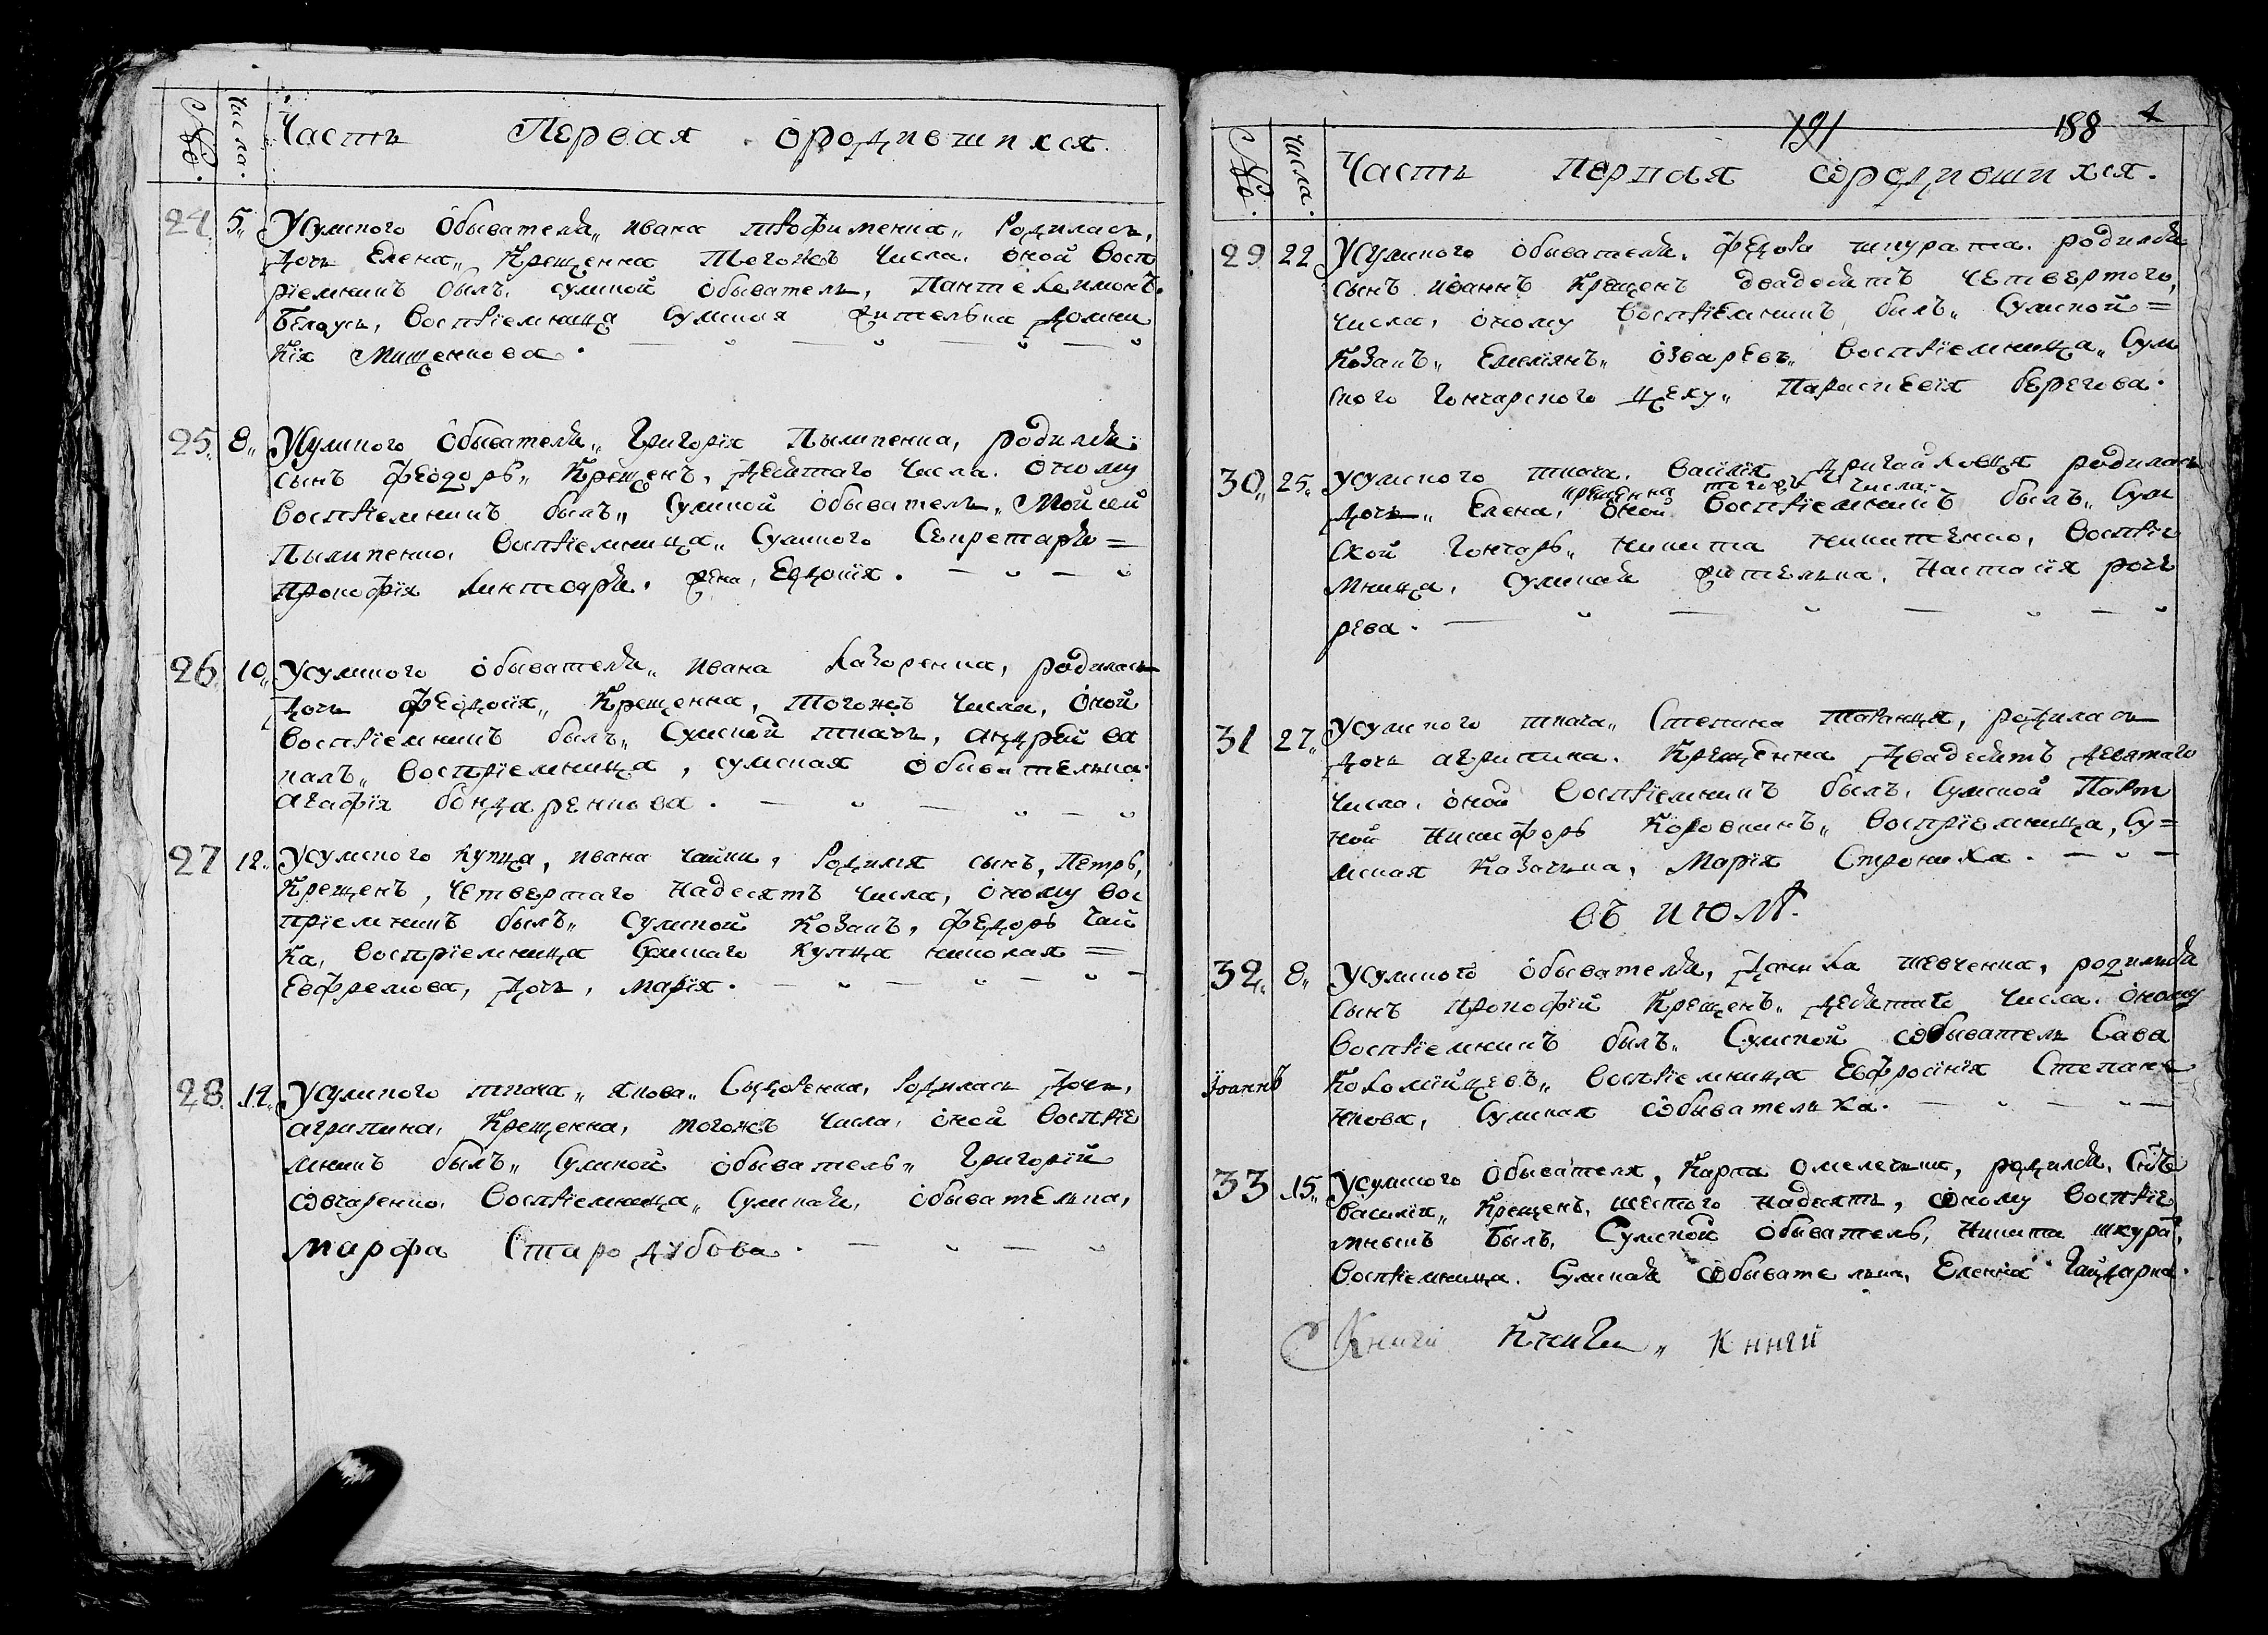 №. Числа. Часть Первая ородившихся.
24 5„ Усумского Обывателя„ ивана Трофименка„ Родилась,
Дочь Елена„ Крещенна Тогожъ Числа. Оной Восп
рїемникъ былъ. сумской обыватель, Пантелеимонъ.
Белоусъ, Воспрїемница Сумская Жителька Домни
кїя Мищенкова.
25. 8„ Усумского Обывателя„ Григорїя Пылипенка, родился
сынъ Феодоръ„ Крещенъ, Девятаго Числа. Оному
Воспрїемникъ былъ„ Сумской Обыватель„ Мойсей
Пылипенко. Воспрїемница„ Сумского Секретаря =
Прокофїя Линтваря. жена, Евдокїя.
26. 10„ Усумского обывателя„ ивана Лазоренка, родилась
Дочь Феодосїя„ Крещенна, Тогожъ Числа, Оной
Воспрїемникъ былъ„ Сумской ткачъ, андрей ва
калъ„ Воспрїемница, сумская Обывателька.
агафїя бондаренкова.
27 12„ Усумского купца, ивана Чайки, Родился сынъ, Петръ,
Крещенъ, Четвертаго Надесять Числа, Оному Вос
прїемникъ былъ„ Сумской Козакъ, Федоръ Чай
ка, Воспрїемница Сумскаго Купца николая =
Евфремова, Дочь, марїя.
28. 14„ Усумского ткача„ якова„ Сыдоренка, Родилась Дочь,
агрипина, Крещенна, тогожъ Числа, Оной Воспрїе
мникъ былъ„ Сумской Обыватель„ Григорїй
Ѡвчаренко. Воспрїемница„ Сумская, обывателька,
марфа Стародубова.
191 188 4
№. Числа. Часть Первая ѡродившихся.
29 22 Усумского обывателя, Федора шкурата. родился
Сынъ иваннъ Крещенъ двадесятъ Четвертого,
числа, оному Воспрїемникъ, былъ„ Сумской =
Козакъ„ Емелїянъ„ Воспрїемница„ Сум
ского Гончарского цеху„ Парасковїя берегова.
30„ 25„ Усумского ткача, Василїя родилась
крещенна тогожъ Числа.
Дочь„ Елена, Оной Воспрїемникъ былъ„ Сум
ской Гончаръ„ никита никитенко, Воспрїе
мница, Сумская жителька, Настасїя
рева.
31 27„ Усумского ткача„ Степана Таранця, родилась
Дочь агрипина. Крещенна Двадесятъ Девятаго
Числа, оной Воспрїемникъ былъ. Сумской Порт
ной никифоръ Коровкинъ„ Воспрїемница, Су=
мская Козачька, Марїя Строниха.
въ июлѣ.
32„ 8„ Усумского обывателя, Данила шевченка, родился
Сынъ Прокофїй Крещенъ„ Девятаго Числа. Оному
Воспрїемникъ былъ„ Сумской ѡбыватель Сава
Iоаннъ Коломїйцевъ„ Воспрїемница Евфросинїя Степане
нкова, Сумская Ѡбывателька.
33 15„ Усумского Обывателя, Карпа Омелечька, родился, Снъ
Василїй„ Крещенъ, шестого надесять, ѡному Воспрїе
мникъ былъ, Сумской Обыватель, никита шкура,
Воспрїемница. Сумская Ѡбывателька, Еленна
Книги Книги„ Книги